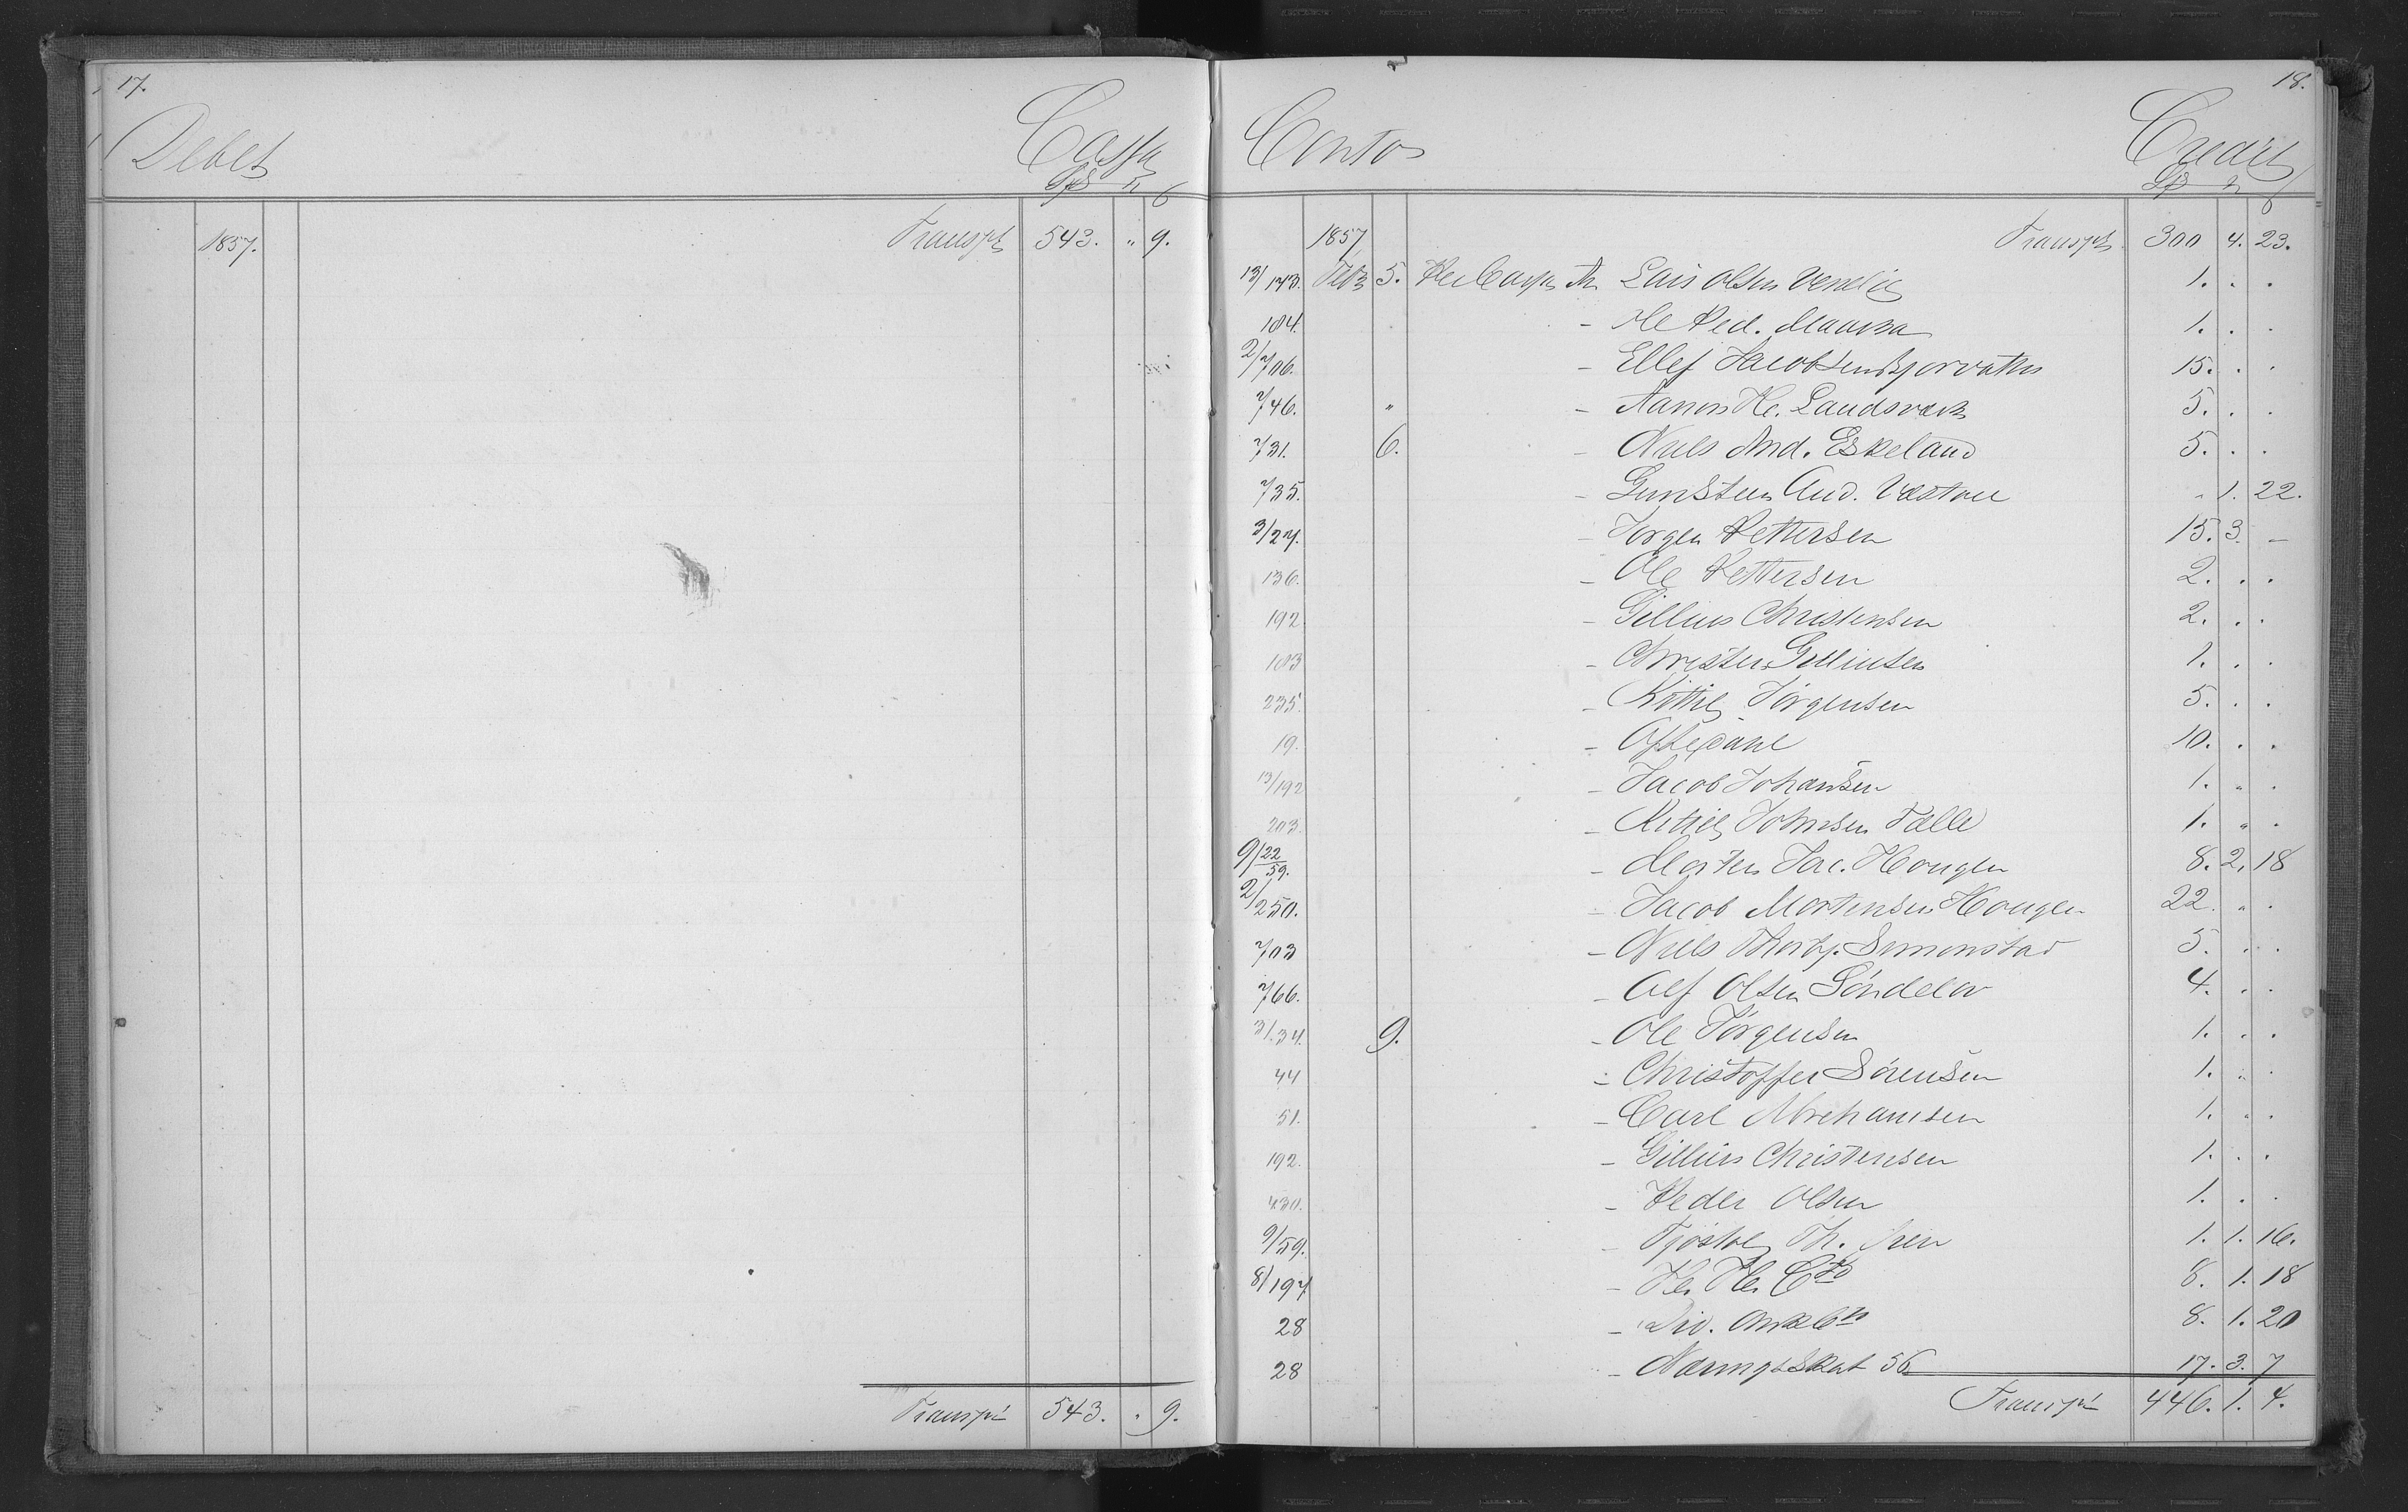 17.
Debet Cassa
Spd
1857. Transpt 543. " 9.
Transpt 543. . 9.
18.
Conto Credit
Spd
1857 Transpt 300 4. 23.
13/173. Febr 5. Per Cassa An Lars Olsen 1. . .
184. - Ole Ped. 1. . .
2/706. - Ellef Jacobsen Bjorvatn 15. . .
746. " - Aanon He. Landsværk 5. . .
731. 6. - Niels And. Eskeland 5. . .
735. - Gunsteen And. " 1. 22.
3/27. - Jørgen Pettersen 15. 3. -
136. - Ole Pettersen 2. . .
192 - Gillius Christensen 2. . .
183 - Christen Gilliusen 1. . .
235. - Kittil Jørgensen 5. . .
19. - Oftedahl 10. . .
13/192 - Jacob Johansen 1. " .
203. - Kittil Johnsen Fælle 1. " .
9/22/59. - Morten Jac. Hougen 8. 2. 18
2/250. - Jacob Mortensen Hougen 22. " .
703 - Niels Thorbj. Simonstad 5. . .
766. - Alf Olsen Søndelev 4. . .
3/.34. 9. - Ole Jørgensen 1. . .
44 - Christoffer Sørensen 1. " .
51. - Carl Abrehamsen 1. " .
192. - Gillius Christensen 1. . .
430. - Peder Olsen 1. . .
9/59. - Tjøstol Th. 1. 1. 16.
8/197 - 8. 1. 18
28 - Div. 8. 1. 20
28 - Næringsskat 56 17. 3. 7
Transpt 446. 1. 4.